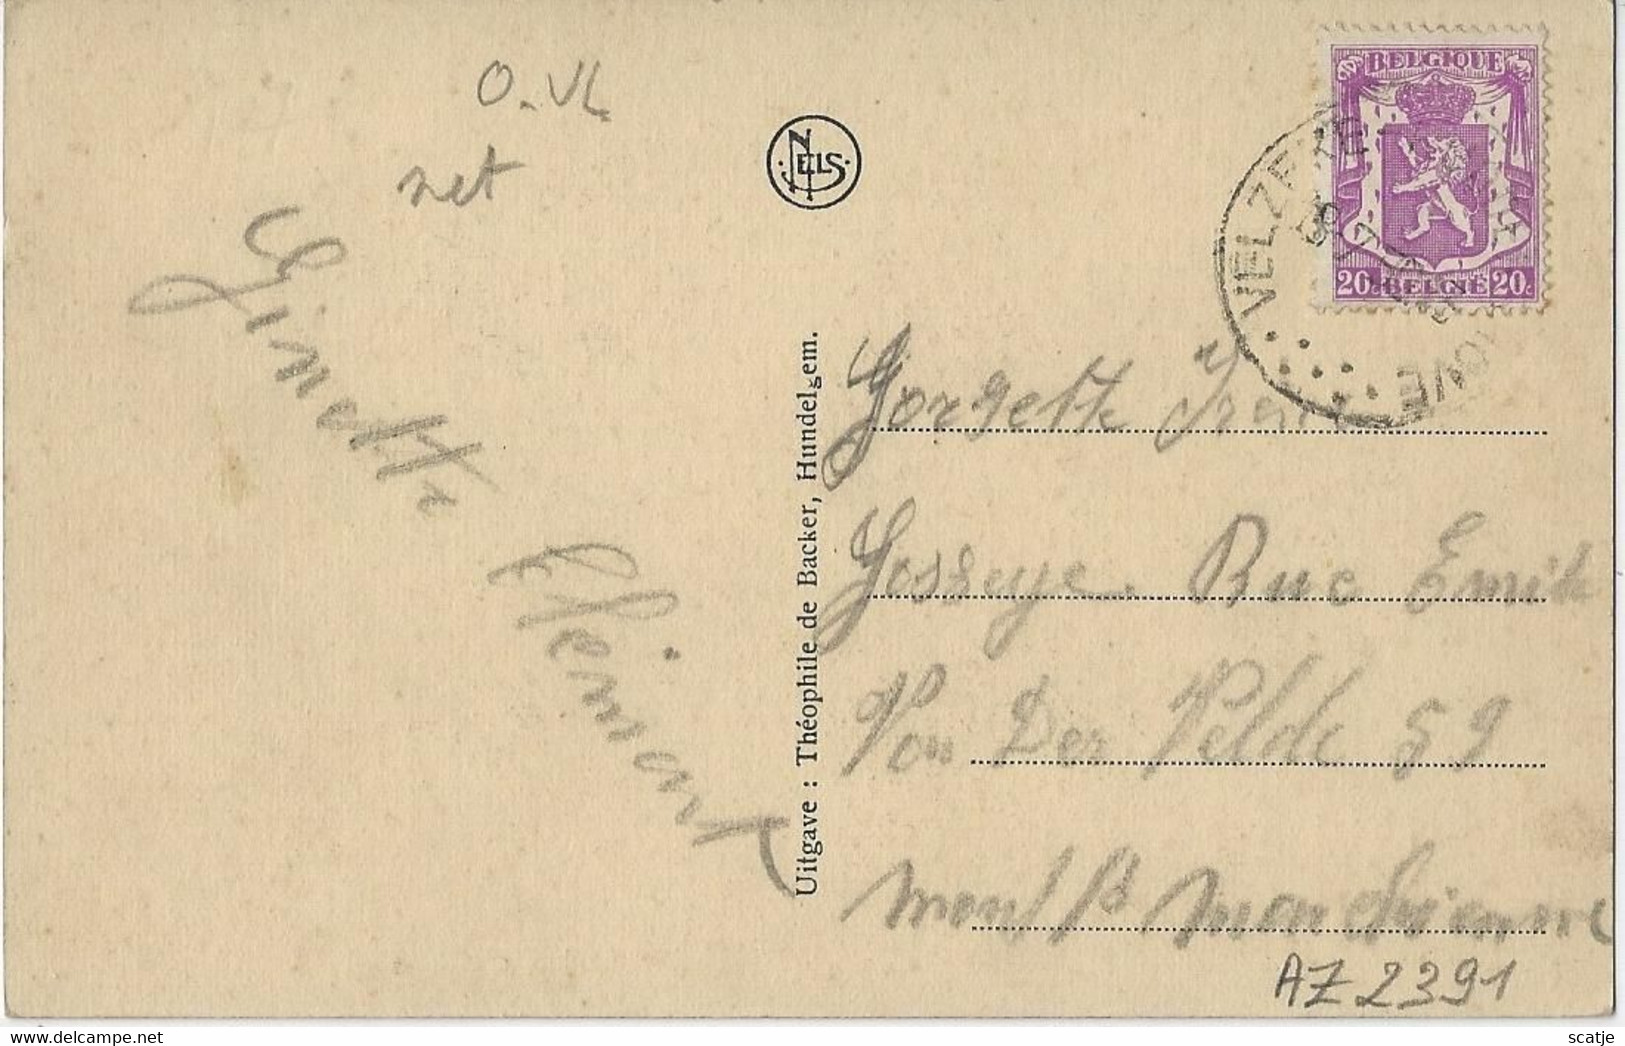 O-VL
net
Ginette
Clémont
NELS
Uitgave : Théophile de Backer, Hundelgem.
BELGIQUE
20c BELGIË 20c
VELZEKE
Gorgette
Gosseye. Rue Emile
Von Der Velde 59
mont s/ marchienne
AZ2391
delcampe.net
scatje